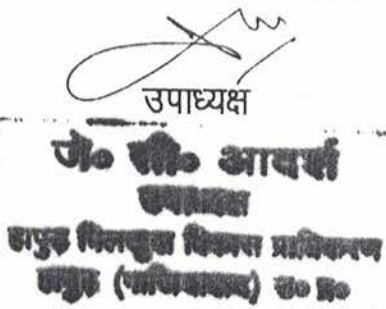 उपाध्यक्ष
जे० सी० आदर्श
उपाध्यक्ष
हापुड़ पिलखुवा विकास प्राधिकरण
हापुड़ (गाजियाबाद) उ० प्र०